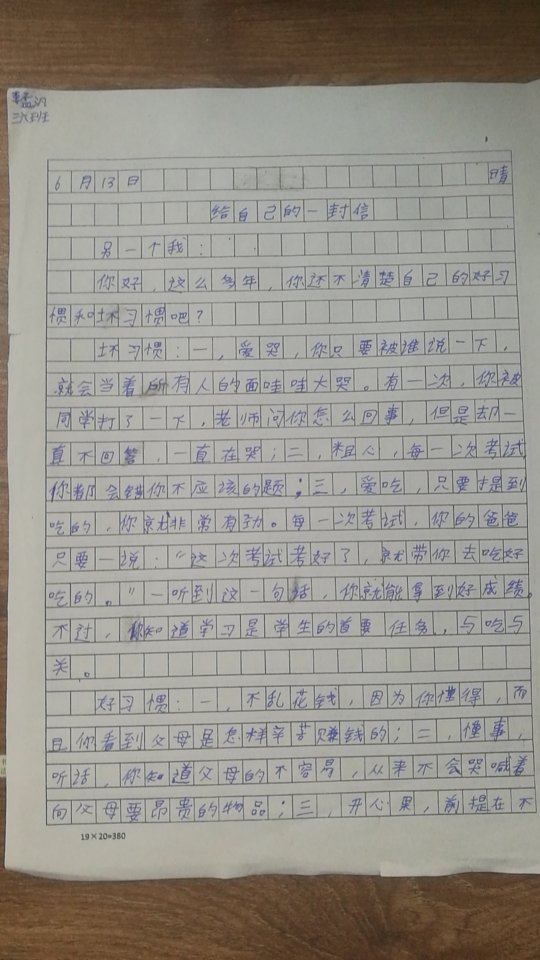 孟汎
三六班
6月13日 晴
给自己的一封信
另一个我：
你好，这么多年，你还不清楚自己的好习
惯和坏习惯吧？
坏习惯：一，爱哭，你只要被谁说一下，
就会当着所有人的面哇哇大哭。有一次，你被
同学打了一下，老师问你怎么回事，但是却一
直不回答，一直在哭；二，粗人，每一次考试
你都会错你不应该的题；三，爱吃，只要提到
吃的，你就非常有劲。每一次考试，你的爸爸
只要一说：“这次考试考好了，就带你去吃好
吃的。”一听到这一句话，你就能拿到好成绩。
不过，你知道学习是学生的首要任务，与吃与
关。
好习惯：一，不乱花钱，因为你懂得，而
且你看到父母是怎样辛苦赚钱的；二，懂事，
听话，你知道父母的不容易，从来不会哭喊着
向父母要昂贵的物品；三，开心果，前提在不
19×20=380